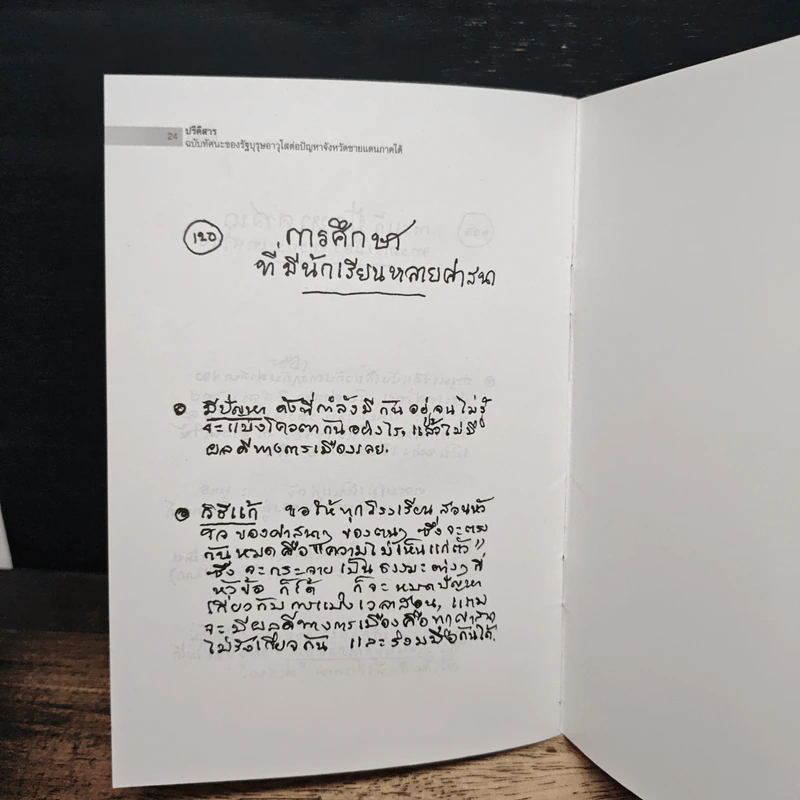 24
ปรีดิสาร
ฉบับทัศนะของรัฐบุรุษอาวุโสต่อปัญหาจังหวัดชายแดนภาคใต้
120
การศึกษา
ที่มีนักเรียนหลายศาสนา
มีปัญหา ดังที่กำลังมีกันอยู่ จนไม่รู้
จะแบ่งโควตากันอย่างไร, แล้วไม่มี
ผลดีทางการเมืองเลย.
วิธีแก้ ขอให้ทุกโรงเรียน สอนหัว
ใจของศาสนาๆ ของตนๆ ซึ่งจะตรง
กันหมดคือ "ความไม่เห็นแก่ตัว"
ซึ่งจะกระจายเป็นธรรมะต่างๆ กี่
หัวข้อ ก็ได้ ก็จะหมดปัญหา
เกี่ยวกับการแบ่งเวลาสอน, แถม
จะมีผลดีทางการเมืองคือทุกศาสนา
ไม่รังเกียจกัน และร่วมมือกันได้.